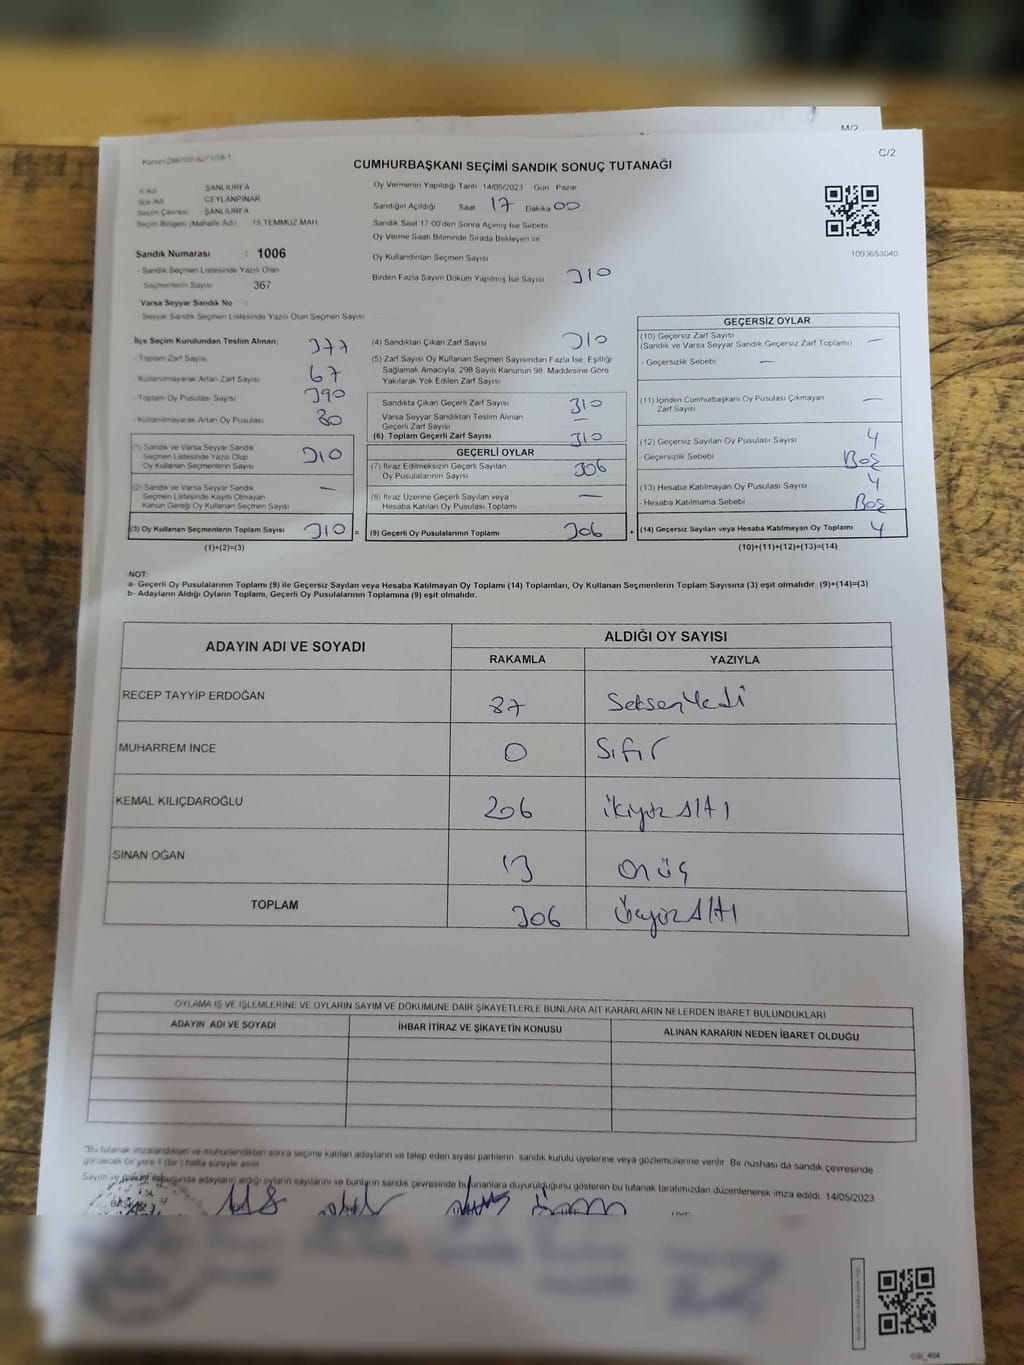 M/2
C/2
CUMHURBAŞKANI SEÇİMİ SANDIK SONUÇ TUTANAĞI
İl Adı ŞANLIURFA
İlçe Adı CEYLANPINAR
Seçim Çevresi : ŞANLIURFA
Seçim Bölgesi (Mahalle Adı) : 15 TEMMUZ MAH.
Sandık Numarası : 1006
- Sandık Seçmen Listesinde Yazılı Olan
Seçmenlerin Sayısı 367
Varsa Seyyar Sandık No :
- Seyyar Sandık Seçmen Listesinde Yazılı Olan Seçmen Sayısı
Oy Vermenin Yapıldığı Tarih 14/05/2023 Gün Pazar
Sandığın Açıldığı Saat 17 Dakika 00
Sandık Saat 17:00'den Sonra Açımış İse Sebebi
Oy Verme Saati Bitiminde Sırada Bekleyen ve
Oy Kullandırılan Seçmen Sayısı
Birden Fazla Sayım Döküm Yapılmış İse Sayısı 310
1093653040
İlçe Seçim Kurulundan Teslim Alınan; 377
- Toplam Zarf Sayısı
- Kullanılmayarak Artan Zarf Sayısı 67
- Toplam Oy Pusulası Sayısı 390
- Kullanılmayarak Artan Oy Pusulası 80
(1) Sandık ve Varsa Seyyar Sandık
Seçmen Listesinde Yazılı Olup
Oy Kullanan Seçmenlerin Sayısı 310
(2) Sandık ve Varsa Seyyar Sandık
Seçmen Listesinde Kayıtlı Olmayan
Kanun Gereği Oy Kullanan Seçmen Sayısı —
(3) Oy Kullanan Seçmenlerin Toplam Sayısı 310 =
(1)+(2)=(3)
(4) Sandıktan Çıkan Zarf Sayısı 310
(5) Zarf Sayısı Oy Kullanan Seçmen Sayısından Fazla İse, Eşitliği
Sağlamak Amacıyla, 298 Sayılı Kanunun 98. Maddesine Göre
Yakılarak Yok Edilen Zarf Sayısı
Sandıkta Çıkan Geçerli Zarf Sayısı 310
Varsa Seyyar Sandıktan Teslim Alınan
Geçerli Zarf Sayısı —
(6) Toplam Geçerli Zarf Sayısı 310
GEÇERLİ OYLAR
(7) İtiraz Edilmeksizin Geçerli Sayılan
Oy Pusulalarının Sayısı 306
(8) İtiraz Üzerine Geçerli Sayılan veya
Hesaba Katılan Oy Pusulası Toplamı —
(9) Geçerli Oy Pusulalarının Toplamı 306 +
GEÇERSİZ OYLAR
(10) Geçersiz Zarf Sayısı
(Sandık ve Varsa Seyyar Sandık Geçersiz Zarf Toplamı) —
- Geçersizlik Sebebi —
(11) İçinden Cumhurbaşkanı Oy Pusulası Çıkmayan
Zarf Sayısı —
(12) Geçersiz Sayılan Oy Pusulası Sayısı 4
- Geçersizlik Sebebi Boş
(13) Hesaba Katılmayan Oy Pusulası Sayısı 4
- Hesaba Katılmama Sebebi Boş
(14) Geçersiz Sayılan veya Hesaba Katılmayan Oy Toplamı 4
(10)+(11)+(12)+(13)=(14)
NOT:
a- Geçerli Oy Pusulalarının Toplamı (9) ile Geçersiz Sayılan veya Hesaba Katılmayan Oy Toplamı (14) Toplamları, Oy Kullanan Seçmenlerin Toplam Sayısına (3) eşit olmalıdır. (9)+(14)=(3)
b- Adayların Aldığı Oyların Toplamı, Geçerli Oy Pusulalarının Toplamına (9) eşit olmalıdır.
ADAYIN ADI VE SOYADI ALDIĞI OY SAYISI
RAKAMLA YAZIYLA
RECEP TAYYİP ERDOĞAN 87 Seksenyedi
MUHARREM İNCE 0 Sıfır
KEMAL KILIÇDAROĞLU 206 ikiyüz Altı
SİNAN OĞAN 13 onüç
TOPLAM 306 üçyüz Altı
OYLAMA İŞ VE İŞLEMLERİNE VE OYLARIN SAYIM VE DÖKÜMÜNE DAİR ŞİKAYETLERLE BUNLARA AİT KARARLARIN NELERDEN İBARET BULUNDUKLARI
ADAYIN ADI VE SOYADI İHBAR İTİRAZ VE ŞİKAYETİN KONUSU ALINAN KARARIN NEDEN İBARET OLDUĞU
"Bu tutanak imzalandıktan ve mühürlendikten sonra seçime katılan adayların ve talep eden siyasi partilerin sandık kurulu üyelerine veya gözlemcilerine verilir. Bir nüshası da sandık çevresinde
görülecek bir yere 1 (bir ) hafta süreyle asılır.
Sayım ve döküm sonucunda adayların aldığı oyların sayılarını ve bunların sandık çevresinde bulunanlara duyurulduğunu gösteren bu tutanak tarafımızdan düzenlenerek imza edildi. 14/05/2023